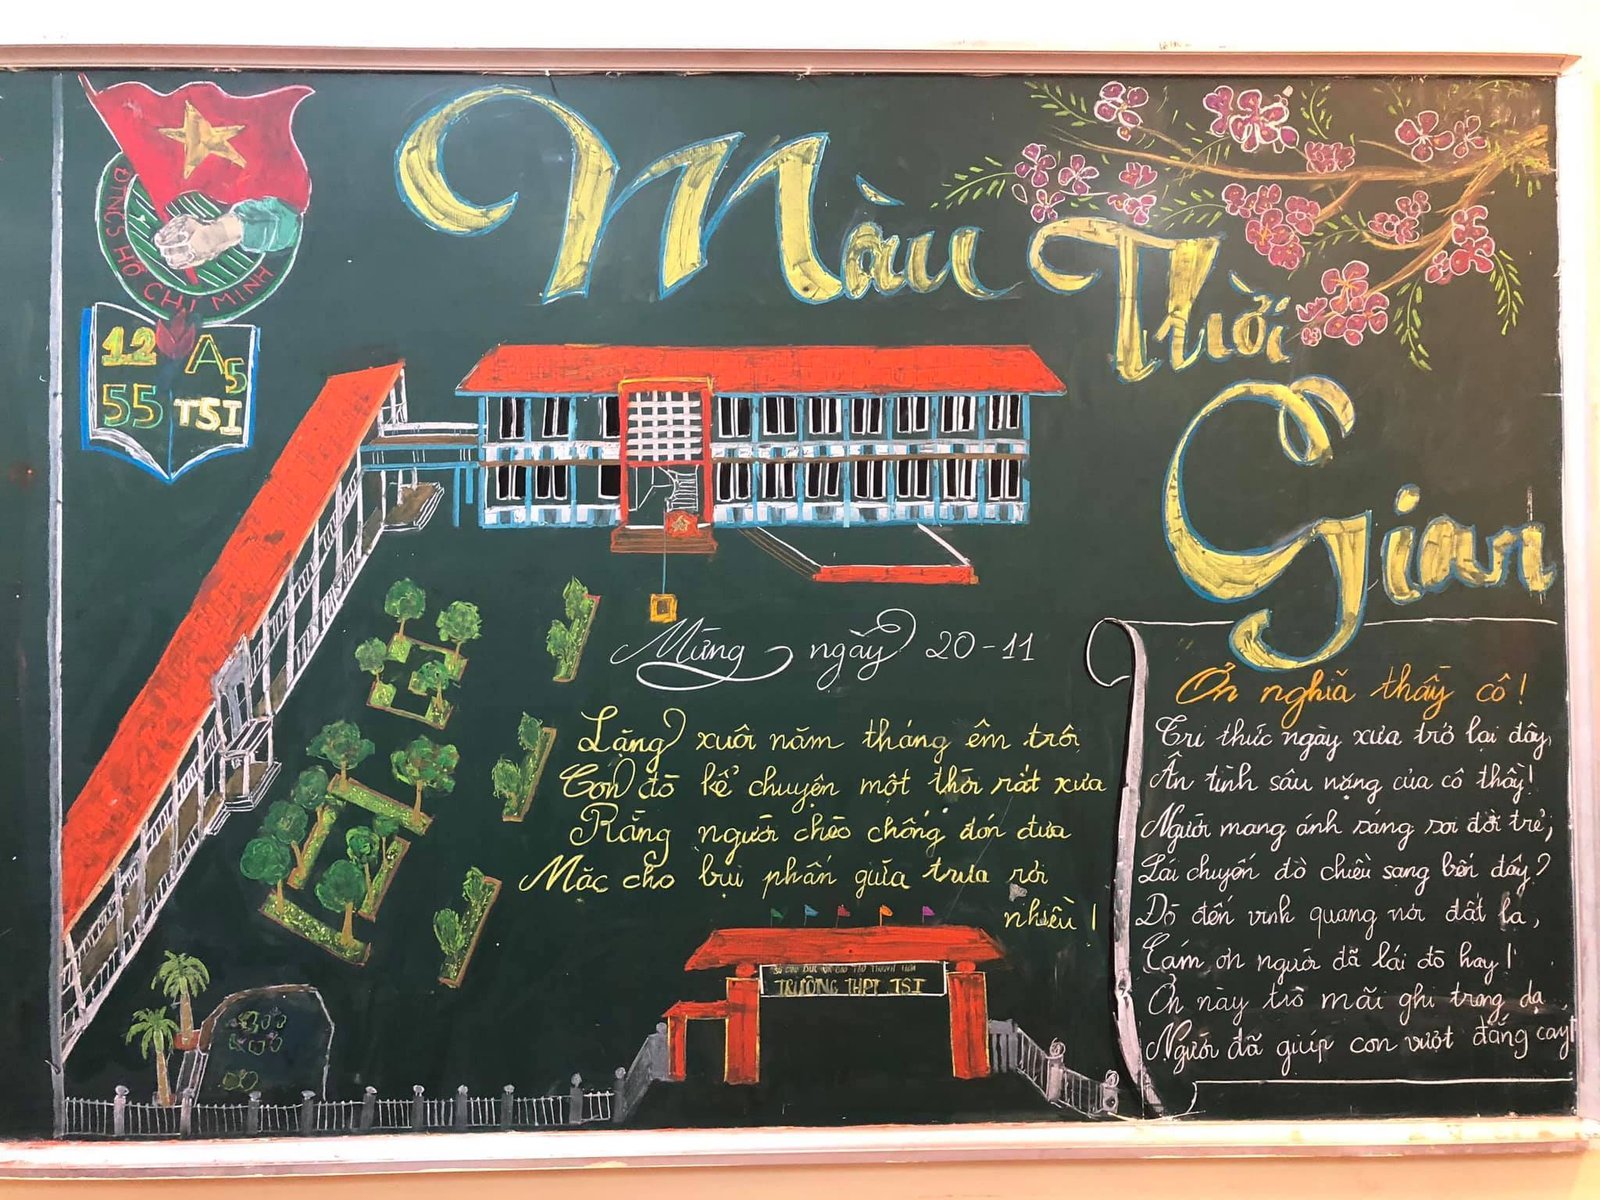 Màu
Thời
Gian
ĐTNCS HỒ CHÍ MINH
12 A5
55 TSI
Mừng ngày 20-11
Lặng xuôi năm tháng êm trôi
Con đò kể chuyện một thời rất xưa
Rằng người chèo chống đón đưa
Mặc cho bụi phấn giữa trưa rơi
nhiều!
Ơn nghĩa thầy cô!
Tri thức ngày xưa trở lại đây,
Ân tình sâu nặng của cô thầy!
Người mang ánh sáng soi đời trẻ;
Lái chuyến đò chiều sang bến đấy?
Dò đến vinh quang nơi đất lạ,
Cám ơn người đã lái đò hay!
Ơn này trò mãi ghi trong dạ
Người đã giúp con vượt đắng cay!
TRƯỜNG THPT TSI